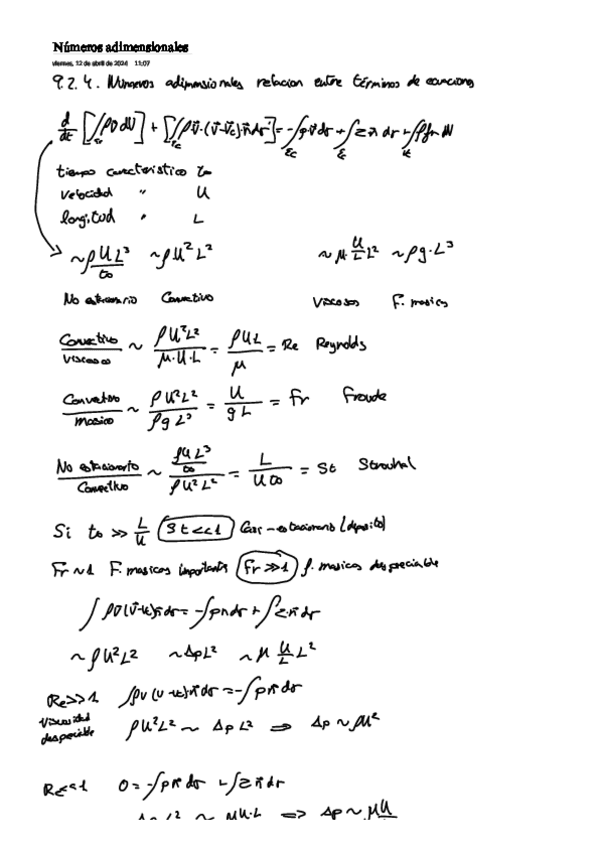 Números adimensionales
viernes, 12 de abril de 2024 11:07
9.2.4. Números adimensionales relacion entre términos de ecuaciones
d/dt [∫ρv̄ dV] + [∫ρv̄·(v̄-v̄c)·n̄ dσ] = -∫p n̄ dσ + ∫τ n̄ dσ + ∫ρ fm dV
tiempo caracteristico to
velocidad " U
longitud " L
~ρ U L³/to ~ρU²L² ~μ U/L L² ~ρg·L³
No estacionario Convectivo Viscosos F. masicos
Convectivo/viscoso ~ ρU²L²/μ·U·L = ρUL/μ = Re Reynolds
Convectivo/masico ~ ρU²L²/ρg L³ = U/gL = Fr Froude
No estacionario/Convectivo ~ (ρUL³/to)/ρU²L² = L/U to = St Strouhal
Si to >> L/U St<<1 Casi-estacionario (deposito)
Fr~1 F. masicas importants Fr>>1 f. masicas despreciable
∫ρv̄(v̄-v̄c)n̄ dσ = -∫p n̄ dσ + ∫τ·n̄ dσ
~ρU²L² ~ΔpL² ~μ U/L L²
Re>>1 ∫ρv(v-vc)n̄ dσ = -∫p n̄ dσ
Viscosidad despreciable ρU²L² ~ Δp L² ⇒ Δp ~ρU²
Re<<1 0 = -∫p n̄ dσ + ∫τ n̄ dσ
Δp L² ~ μU·L ⇒ Δp ~ μU/L